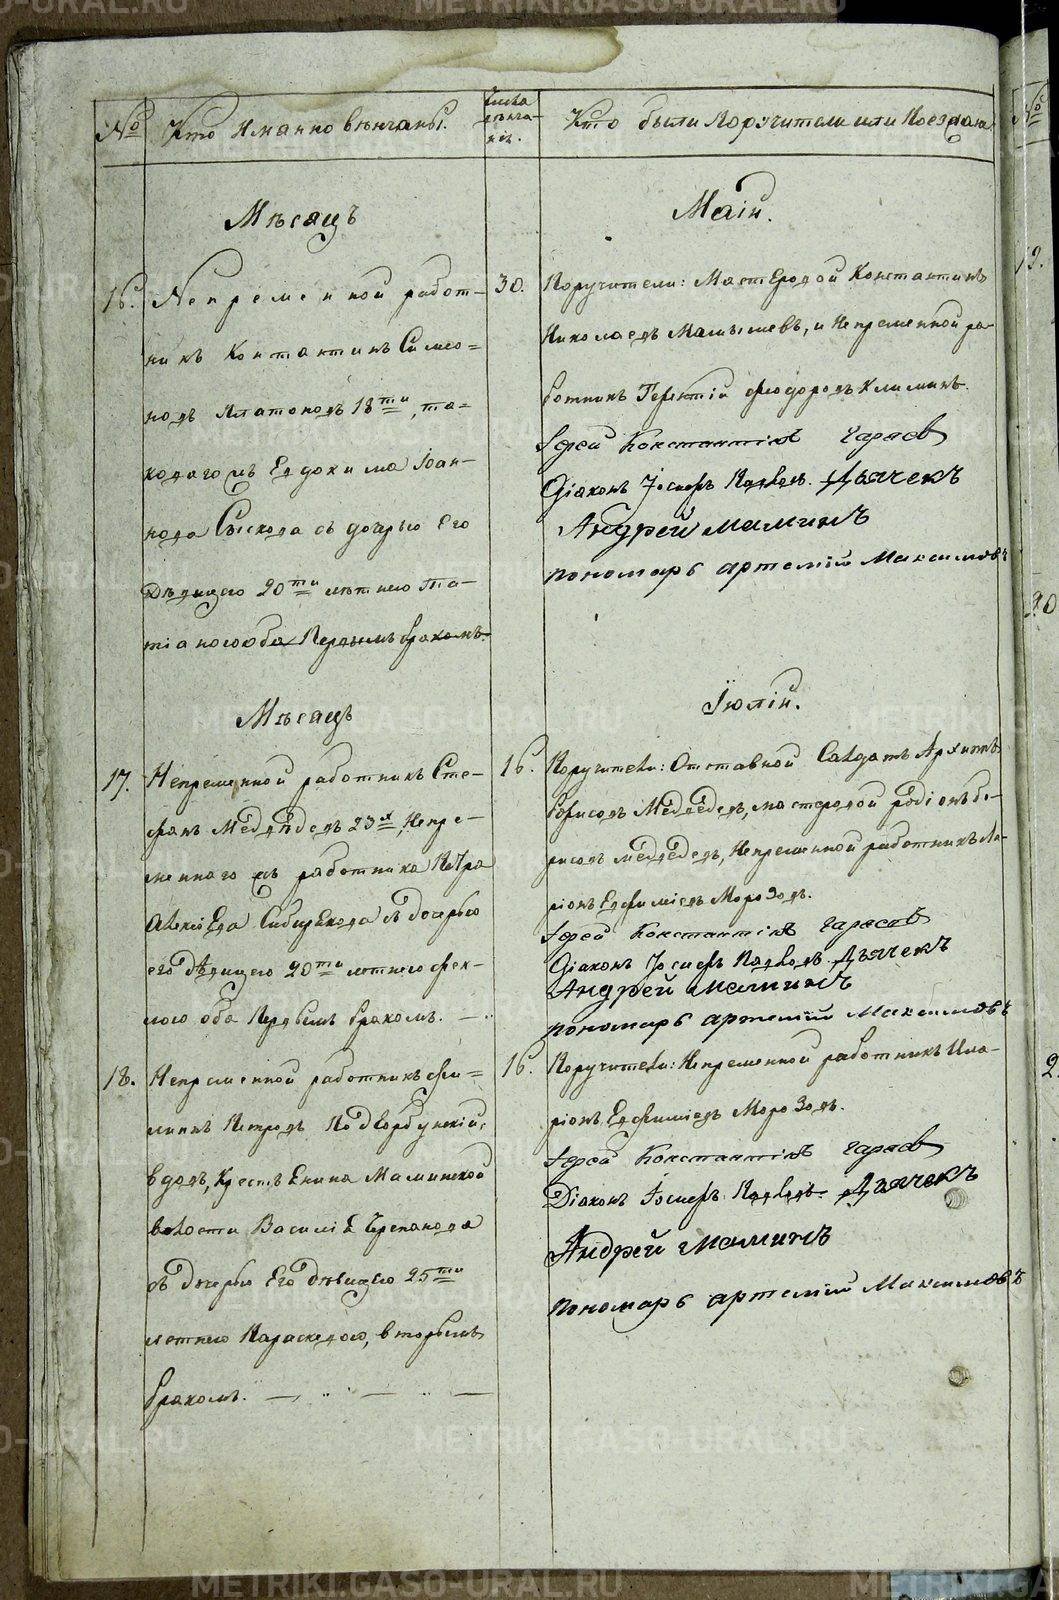 №
Кто имянно венчаны.
Числа венча-нія.
Кто были поручители или поезжана
Мѣсяцъ
Маій.
16.
Непременной работ-
никъ Контантинъ Симео-
новъ Платоновъ 18ти, та-
коваго жъ Евдокима Іоан-
нова Сыскова съ дочерью его
девицею 20ти летнею Та-
тіаною оба первымъ бракомъ.
30.
Поручители: Мастеровой Константинъ
Николаевъ Малышевъ, и непременной ра-
ботникъ Терентій Феодоровъ Климинъ.
Іерей Константинъ
Діаконъ Іосифъ Павловъ. Дьячекъ
Андрей Маминъ
пономарь Артемій Максимовъ
Мѣсяцъ
Іюлій.
17.
Непременной работникъ Сте-
фанъ Медведевъ 23х, Непре-
меннаго жъ работника Петра
Алексіева Сибирякова съ дочерью
его девицею 20ти летнею Фек-
лою оба первымъ бракомъ.
16.
Поручители: Отставной Салдатъ Архипъ
Борисовъ Медведевъ, мастеровой Родіонъ Бо-
рисовъ Медведевъ, Непременной работникъ Ла-
ріонъ Евфиміевъ Морозовъ.
Іерей Константинъ
Діаконъ Іосифъ Павловъ. Дьячекъ
Андрей Маминъ
пономарь Артемій Максимовъ
18.
Непременной работникъ Фи-
липпъ Петровъ
вдовъ, Крестьянина Маминской
волости Василія Черепанова
съ дочерью его девицею 25ти
летнею Параскевою, вторымъ
бракомъ.
16.
Поручители: Непременной работникъ Ила-
ріонъ Евфиміевъ Морозовъ.
Іерей Константинъ
Діаконъ Іосифъ Павловъ. Дьячекъ
Андрей Маминъ
пономарь Артемій Максимовъ
METRIKI.GASO-URAL.RU